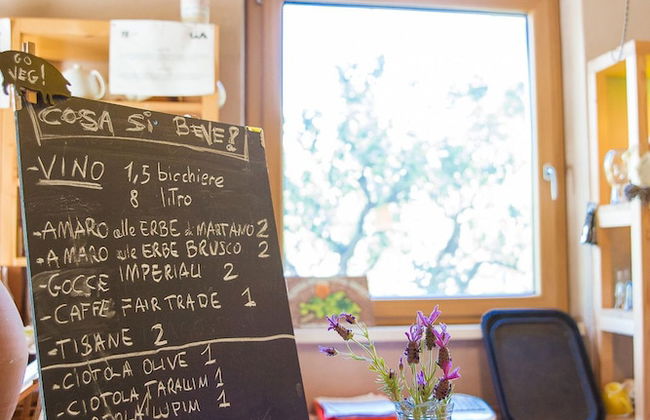 GO
VEG!
COSA SI BEVE?
-VINO 1,5 bicchiere
8 litro
-AMARO alle ERBE di MARTANO 2
-AMARO alle ERBE BRUSCO 2
-GOCCE IMPERIALI 2
-CAFFE FAIRTRADE 1
-TISANE 2
-CIOTOLA OLIVE 1
-CIOTOLA TARALLIM 1
LUPIM 1